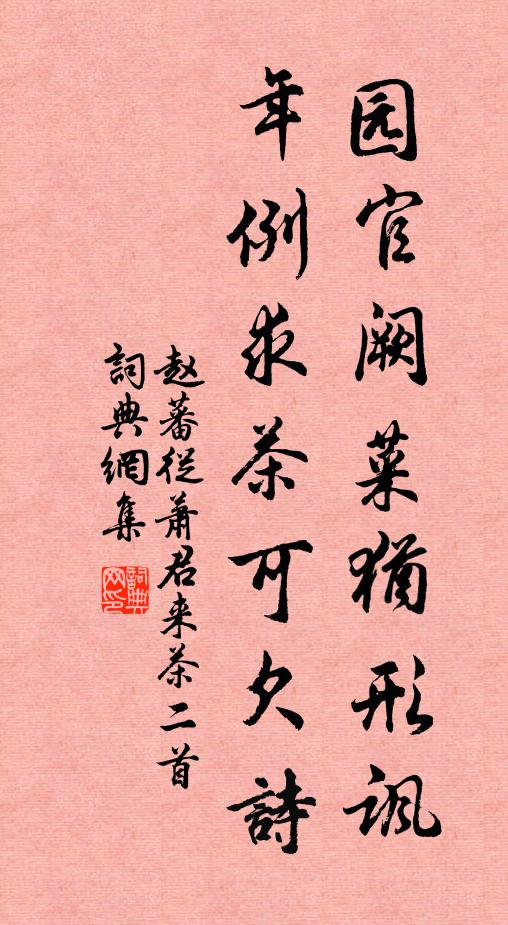 园官阙菜犹形讽
年例求茶可欠詩
赵蕃從萧君来茶二首
詞典網集
詞典网印